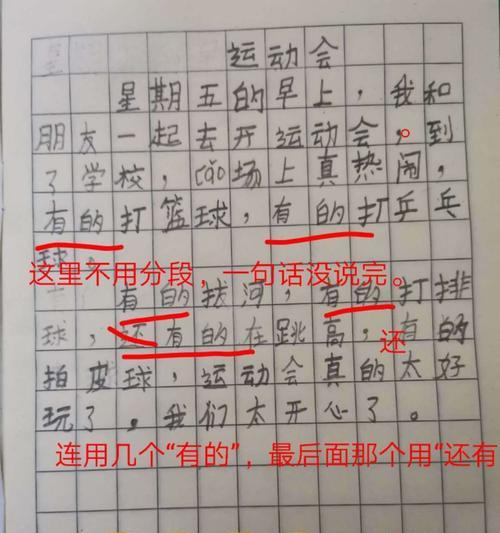 运动会
星期五的早上，我和
朋友一起去开运动会，。到
了学校，cāo场上真热闹，
有的打篮球，有的打乒乓
球，
这里不用分段，一句话没说完。
有的拔河，有的打排
球，还有的在跳高，有的
还
拍皮球，运动会真的太好
玩了。我们太开心了。
连用几个“有的”，最后面那个用“还有